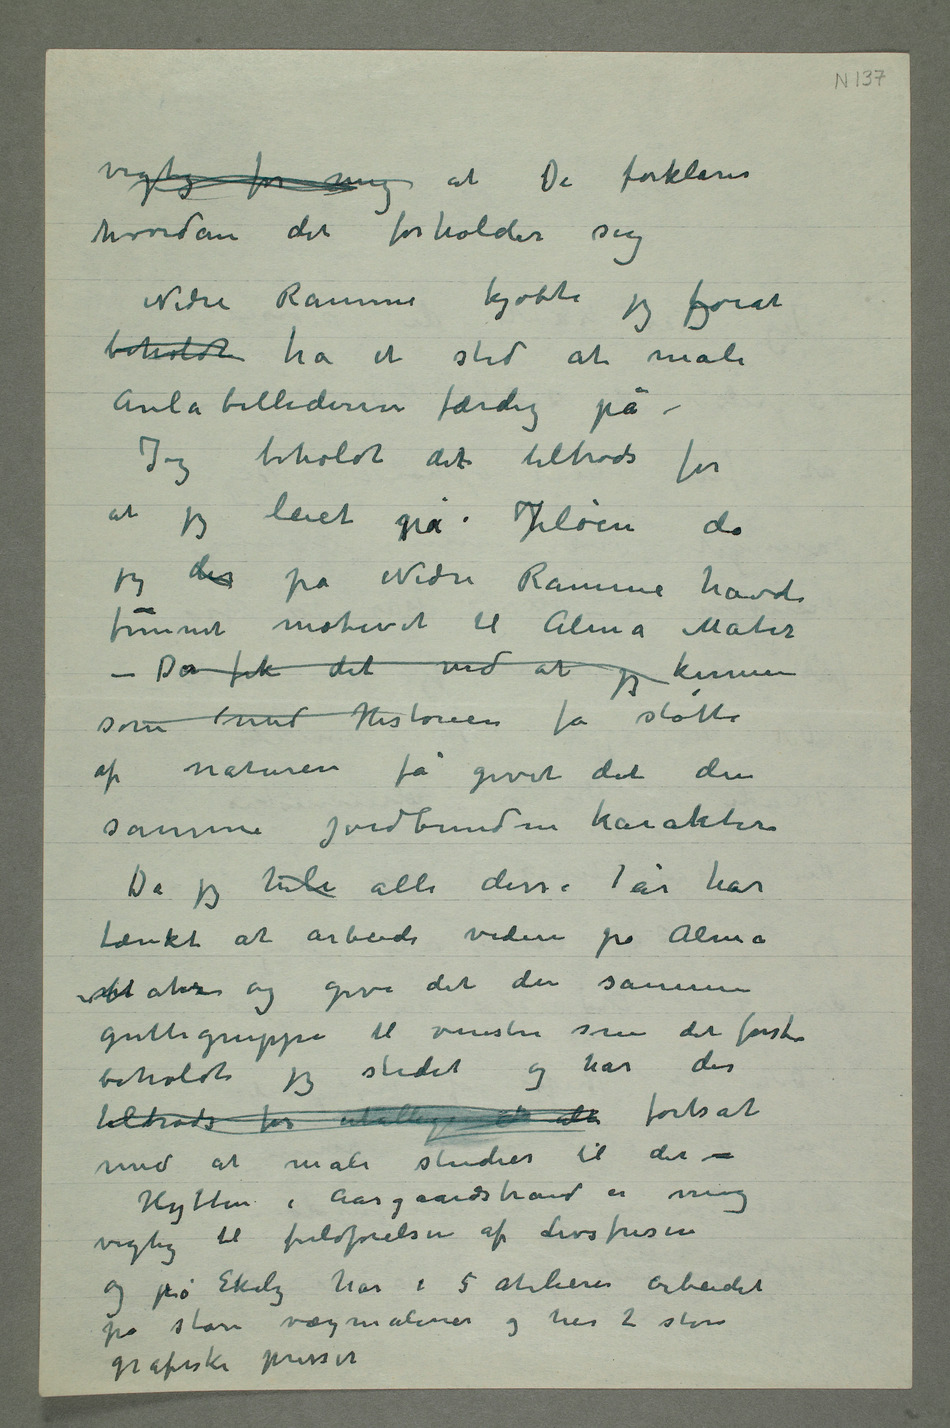 N 137
vigtig for mig at De forklarer
hvordan det forholder seg
Nedre Ramme kjøbte jeg forat
beholdt ha et sted at male
Aulabillederne færdig på –
Jeg beholdt det tiltrods for
at jeg leiet på Jeløen da
jeg der på Nedre Ramme havde
funnet motivet til Alma Mater
– Da fik det ved at jeg kunne
som med Historien få støtte
af naturen få givet det den
samme jordbundne karakter
Da jeg hele alle disse år har
tænkt at arbeide videre på Alma
Mater og give det den samme
guttegruppe til venstre som det første
beholdt jeg stedet og har der
tiltrods for fortsat
med at male studier til det –
Hytten i Aasgaardstrand er meg
vigtig til fuldførelsen af Livsfrisen
og på Ekely har i 5 atelierer arbeidet
på store vægmalerier og har 2 store
grafiske presser